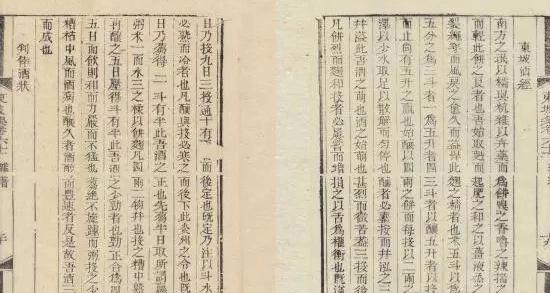 東坡酒經
南方之氓以糯與秔雜以卉藥而為餅嗅之香嚼之辣揣之
而輕此餅之良者也吾始取麪而起肥之和之以薑液烝之
裂繩穿而風戾之愈久而益悍此麴之精者也米五斗以為
五分之為三斗者一為五升者四三斗者以釀五升者以
而止尚有五升之贏也始釀以四兩之餅而每投以二兩之
澤以少水取足以散解而勻停也釀者必甕按而井泓之三
井溢此吾酒之萌也酒之始萌也甚烈而微苦蓋三投而後
凡餅烈而麴和投者必屢嘗而增損之以舌為權衡也既溢
日乃投九日三投通十有五日而後定也既定乃注以斗水
必熟而冷者也凡釀與投必寒之而後下此炎州之令也既
日乃篘得二斗有半此吾酒之正也先篘半日取所謂贏
粥米一而水三之揉以餅麴凡四兩二物并也投之糟中熟
再釀之五日壓得斗有半此吾酒之少勁者也勁正合為四
五日而飲則和而力嚴而不猛也篘絕不旋踵而粥投之少
糟枯中風而酒病也釀久者酒醇而豐速者反是故吾酒三
而成也
判倖酒狀